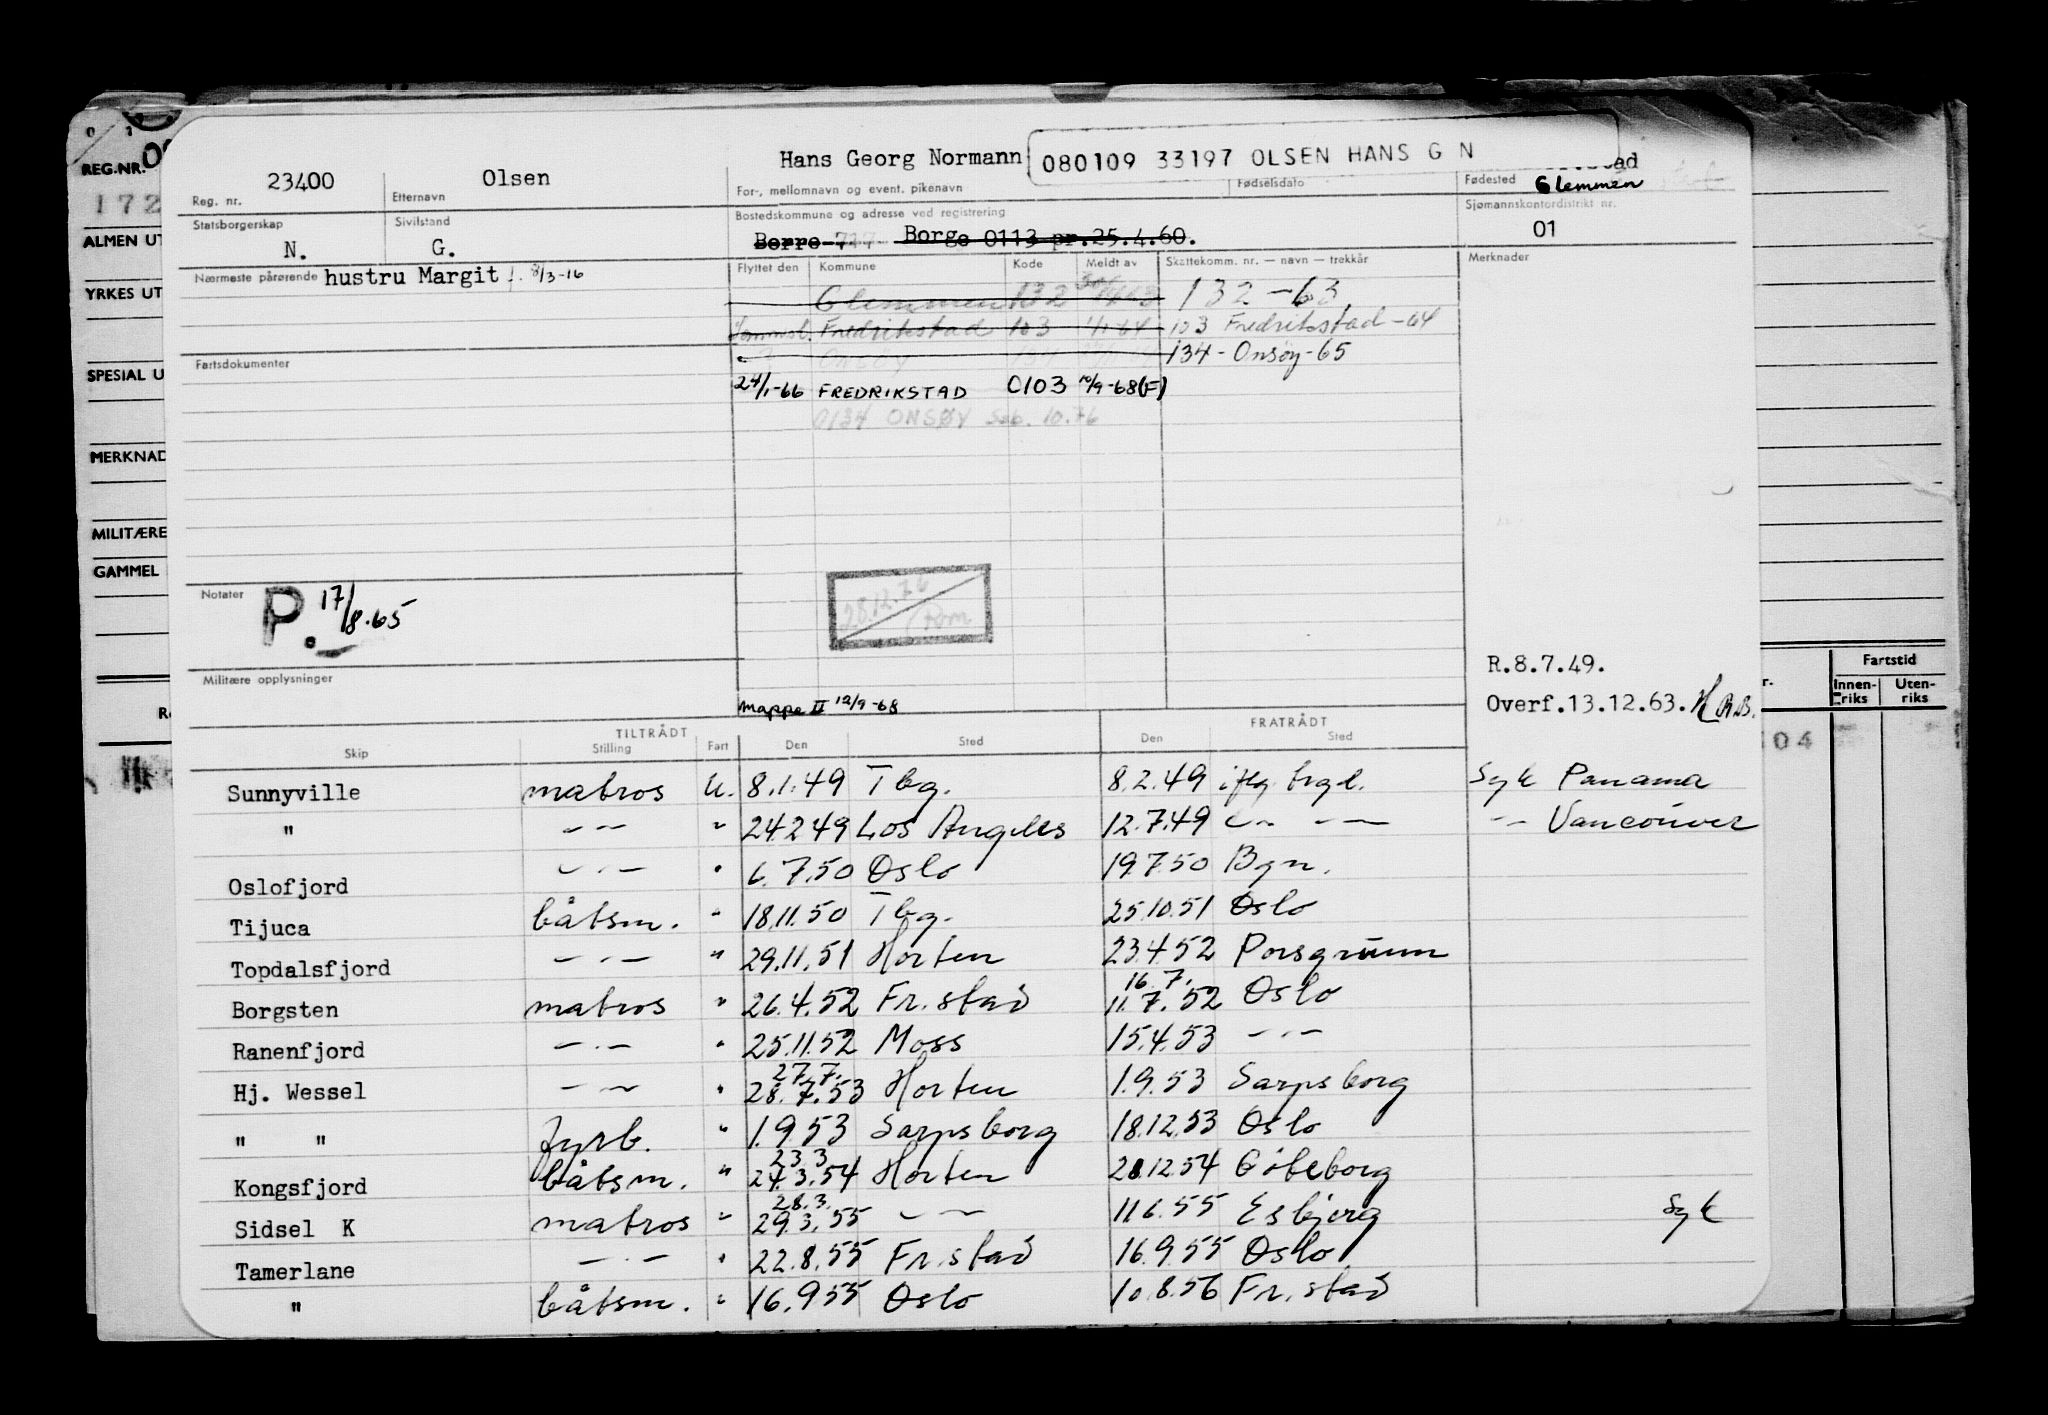 REG.NR.
172
ALMEN UT
YRKES UT
SPESIAL U
MERKNAD
MILITÆRE
GAMMEL
23400 Olsen Hans Georg Normann 080109 33197 OLSEN HANS G N ad
Reg. nr. Etternavn For-, mellomnavn og event. pikenavn Fødselsdato Fødested Glemmen
Statsborgerskap Sivilstand Bostedskommune og adresse ved registrering Sjømannskontordistrikt nr.
N. G. Borre Borge 0113 pr.25.4.60. 01
Nærmeste pårørende hustru Margit f. 8/3-16
Flyttet den Kommune Kode Meldt av Skattekomm. nr. — navn — trekkår Merknader
Glemmen 132 132-63
Fredrikstad 103 103 Fredrikstad-64
Onsøy 134-Onsøy-65
Fartsdokumenter
24/1-66 FREDRIKSTAD 0103 10/9-68(F)
0134 ONSØY 10.76
Notater P. 17/8.65
28.12.76
R.8.7.49.
Militære opplysninger
Mappe II 12/9-68
Overf.13.12.63.
Fartstid
Innen-riks Uten-riks
04
TILTRÅDT FRATRÅDT
Skip Stilling Fart Den Sted Den Sted
Sunnyville matros U. 8.1.49 Tbg. 8.2.49 iflg. brgd. Syk Panama
" -"- " 24.2.49 Los Angeles 12.7.49 -"- -"- -"- Vancouver
Oslofjord -"- " 6.7.50 Oslo 19.7.50 Bgn.
Tijuca båtsm. " 18.11.50 Tbg. 25.10.51 Oslo
Topdalsfjord -"- " 29.11.51 Horten 23.4.52 Porsgrunn
16.7.
Borgsten matros " 26.4.52 Fr.stad 11.7.52 Oslo
Ranenfjord -"- " 25.11.52 Moss 15.4.53 -"-
27.7.
Hj. Wessel -"- " 28.7.53 Horten 1.9.53 Sarpsborg
" " fyrb. " 1.9.53 Sarpsborg 18.12.53 Oslo
23.3
Kongsfjord båtsm. " 24.3.54 Horten 21.12.54 Göteborg
28.3.
Sidsel K matros " 29.3.55 -"- 11.6.55 Esbjerg Syk
Tamerlane -"- " 22.8.55 Fr.stad 16.9.55 Oslo
" båtsm. " 16.9.55 Oslo 10.8.56 Fr.stad